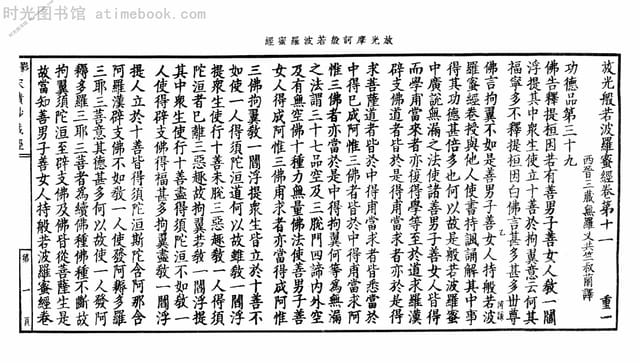 时光图书馆 - atimebook.com
放光摩訶般若波羅蜜經
放光般若波羅蜜經卷第十一 重一
西晉三藏無羅叉共竺叔蘭譯
功德品第三十九
佛告釋提桓因若有善男子善女人教一閻
浮提其中眾生使立十善於拘翼意云何其
福寧多不釋提桓因白佛言甚多甚多世尊
佛言拘翼不如是善男子善女人持般若波
羅蜜經卷授與他人使書持諷誦解其中事
得其功德甚倍多也何以故是般若波羅蜜
中廣說無漏之法使諸善男子善女人皆得
而學甫當來者亦復得學等至於道求羅漢
辟支佛道者皆於是得甫當求者亦於是得
求菩薩道者皆於中得甫當求者皆悉當於
中得已成阿惟三佛者皆於中得甫當成阿
惟三佛者亦當於中得拘翼何等為無漏
之法謂三十七品空及三脫門四諦內外空
及有無空佛十種力無量佛法使善男子善
女人得成阿惟三佛甫求者亦當得成阿惟
三佛拘翼教一閻浮提眾生皆立於十善不
如使一人得須陀洹道何以故雖教一閻浮
提眾生使行十善未脫三惡趣教一人得須
陀洹者已離三惡趣故拘翼若教一閻浮提
其中眾生使行十善盡得須陀洹不如教一
人使得辟支佛得福甚多拘翼盡教一閻浮
提人立於十善皆得須陀洹斯陀含阿那含
阿羅漢辟支佛不如教一人使發阿耨多羅
三耶三菩意其德甚多何以故使一人發阿
耨多羅三耶三菩者為續佛種佛種不斷故
拘翼須陀洹至辟支佛及佛皆從菩薩生是
故當知善男子善女人持般若波羅蜜經卷
第一頁